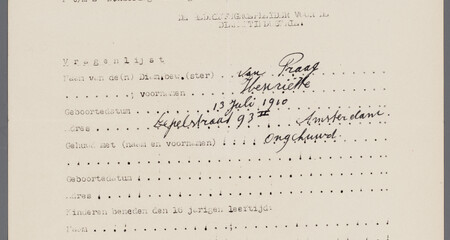 DE
V r a g e n l i j s t
Naam van de(n) Diam.bew.(ster) van Praag
voornamen Henriëtte
Geboortedatum 13 Juli 1910
Adres Lepelstraat 93 II Amsterdam
Gehuwd met (naam en voornamen) Ongehuwd.
Geboortedatum
Adres
Kinderen beneden den 16 jarigen leeftijd:
Naam